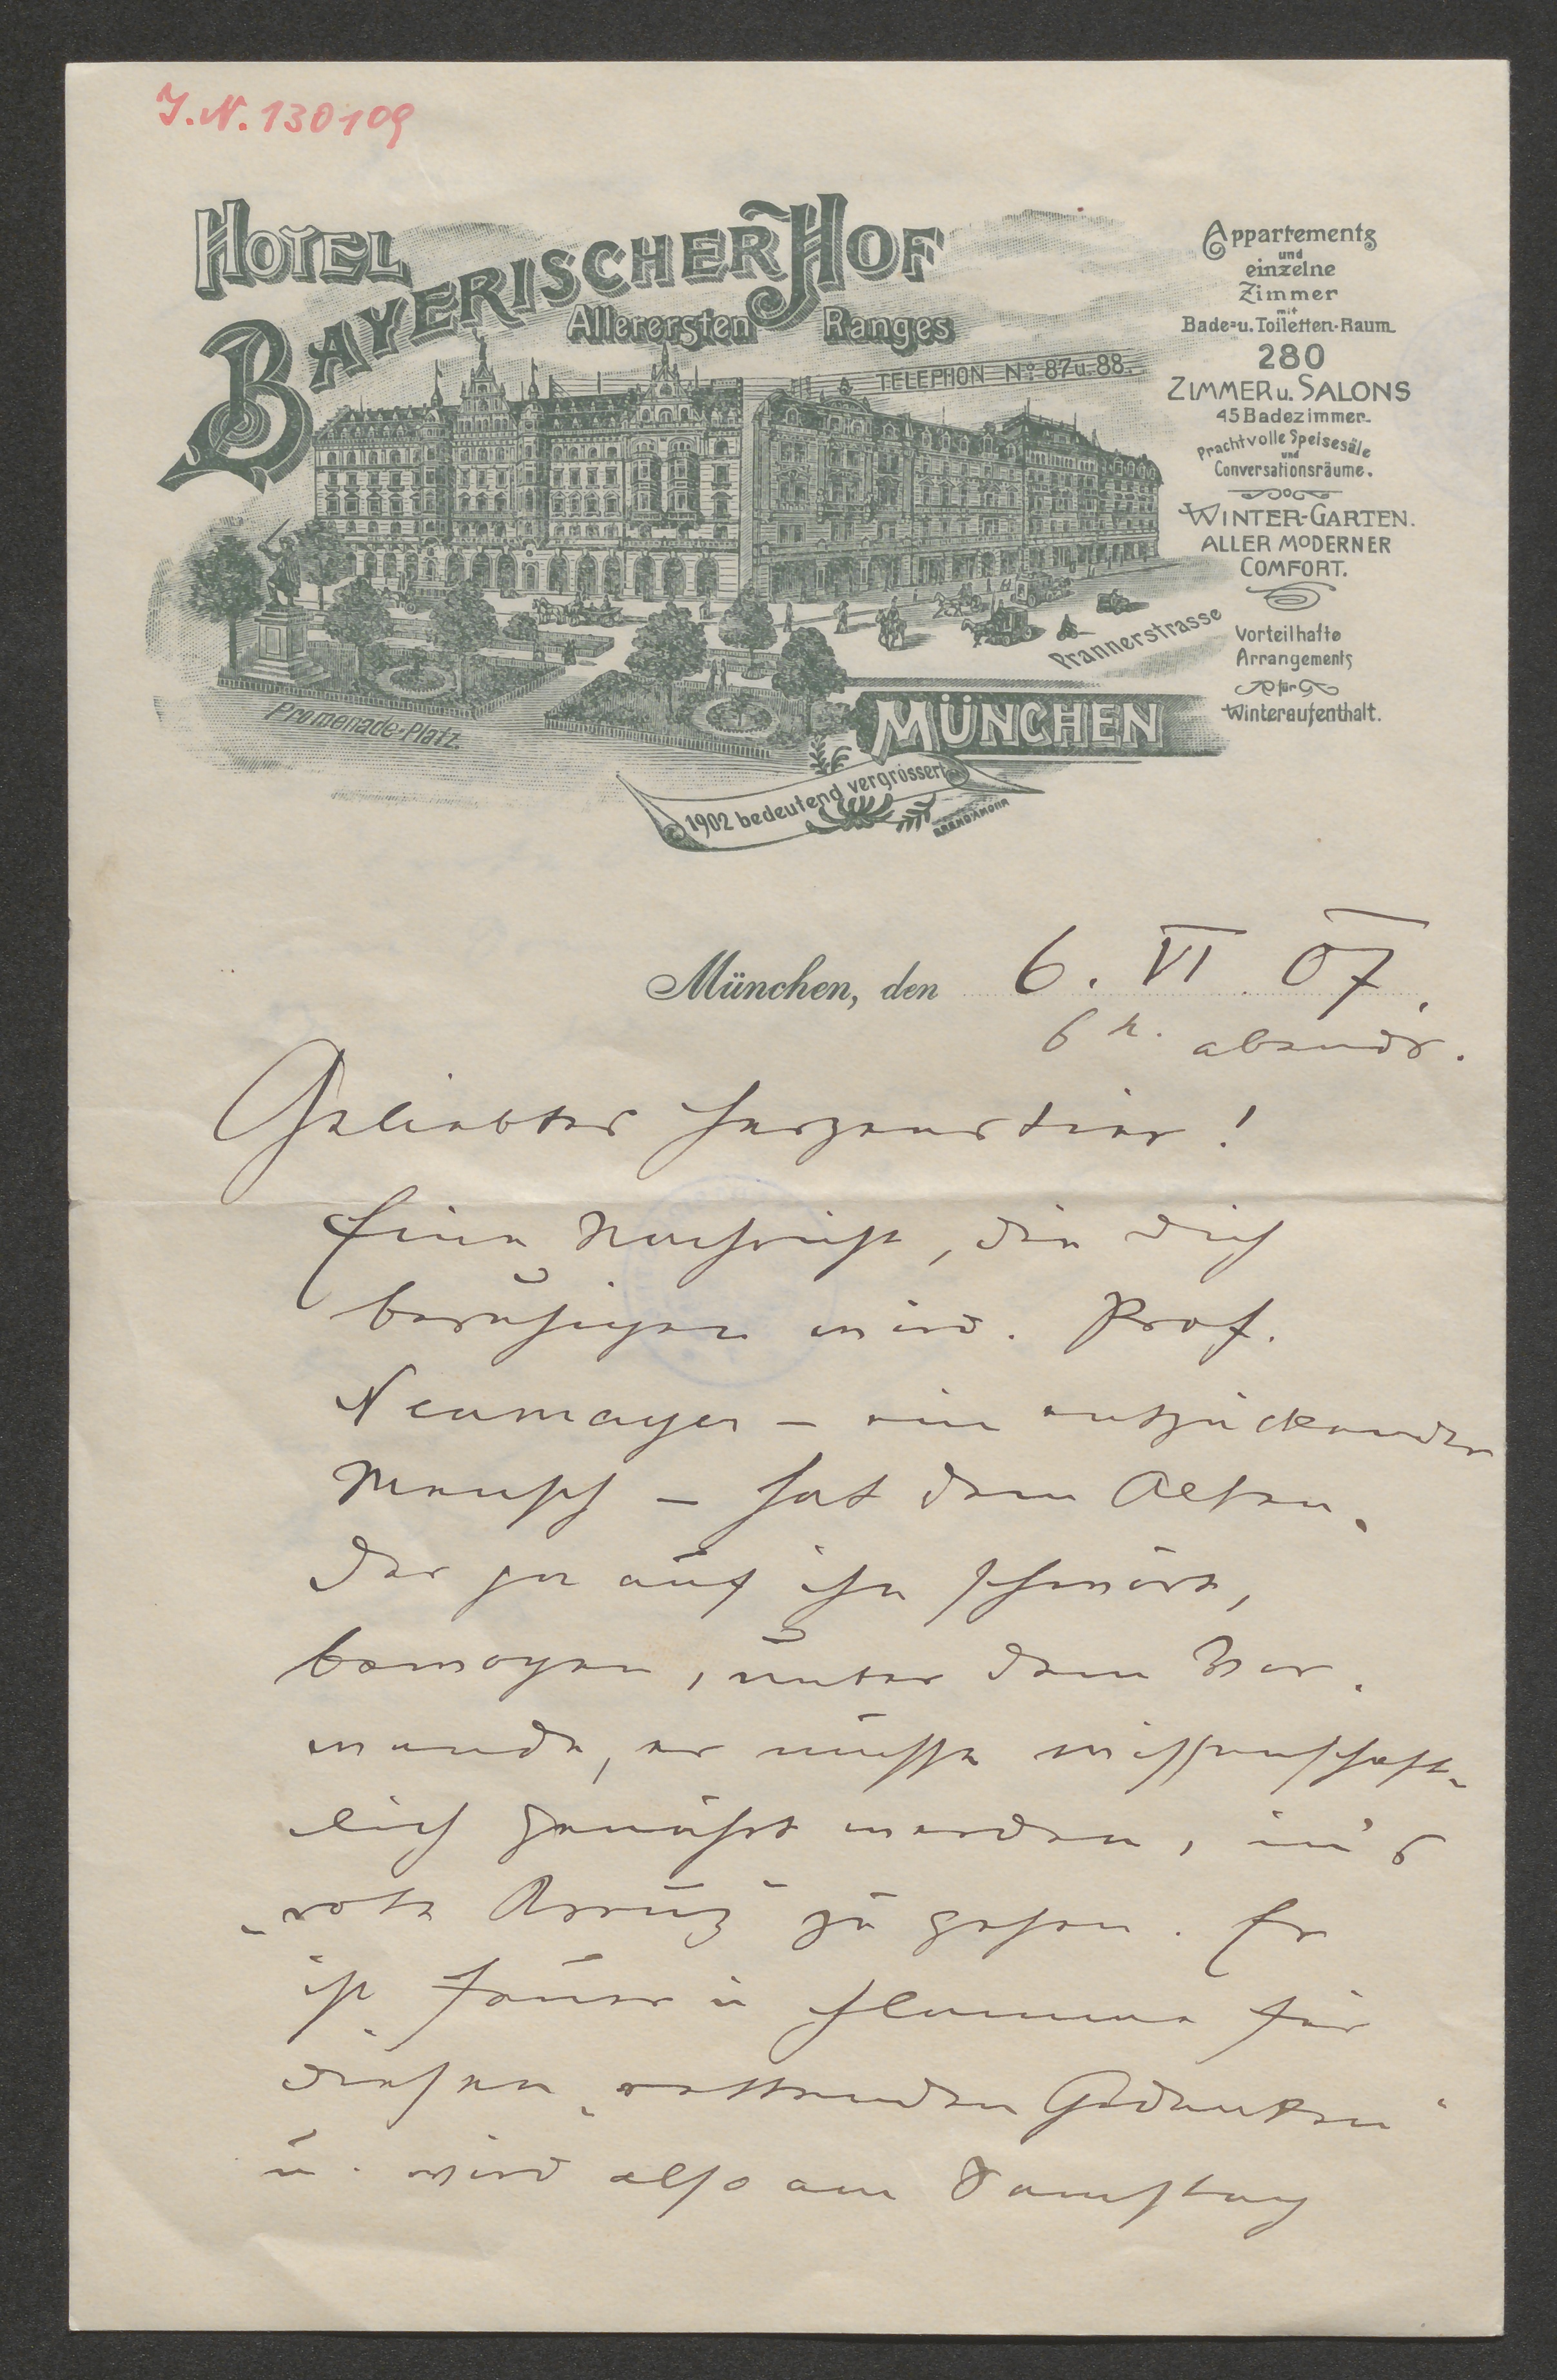 I.N. 130109
HOTEL
BAYERISCHER HOF
Allerersten Ranges
TELEPHON No. 87 u. 88.
Appartements
und
einzelne
Zimmer
mit
Bade- u. Toiletten-Raum
280
ZIMMER u. SALONS
45 Badezimmer
Prachtvolle Speisesäle
und
Conversationsräume.
WINTER-GARTEN.
ALLER MODERNER
COMFORT.
Vorteilhafte
Arrangements
für
Winteraufenthalt.
Prannerstrasse
Promenade-Platz.
MÜNCHEN
1902 bedeutend vergrössert
BREND'AMOUR
München, den 6. VI. 07.
6 h. abends.
Geliebtes Herzenstier!
Eine Nachricht, die dich
beruhigen wird. Prof.
Neumayer – ein entzückender
Mensch – hat dem Alten,
der ja auf ihn schwört,
bewogen, unter dem Vor-
wande, er müsse wissenschaft-
lich genährt werden, in's
„rote Kreuz" zu gehen. Er
ist Feuer u Flamme für
diesen „rettenden Gedanken"
u. wird also am Samstag